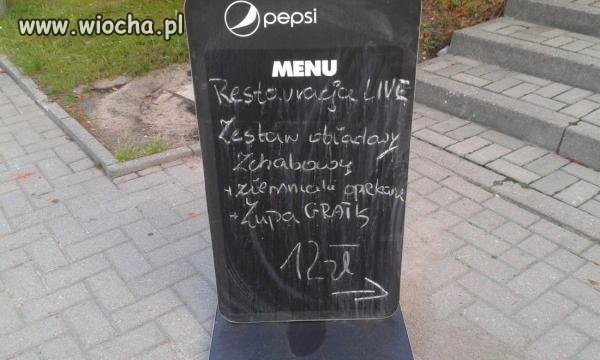 www.wiocha.pl
pepsi
MENU
Restauracja LIVE
Zestaw obiadowy
Zchabowy
+ ziemniaki opiekane
+ Zupa GRATIS
12 zł